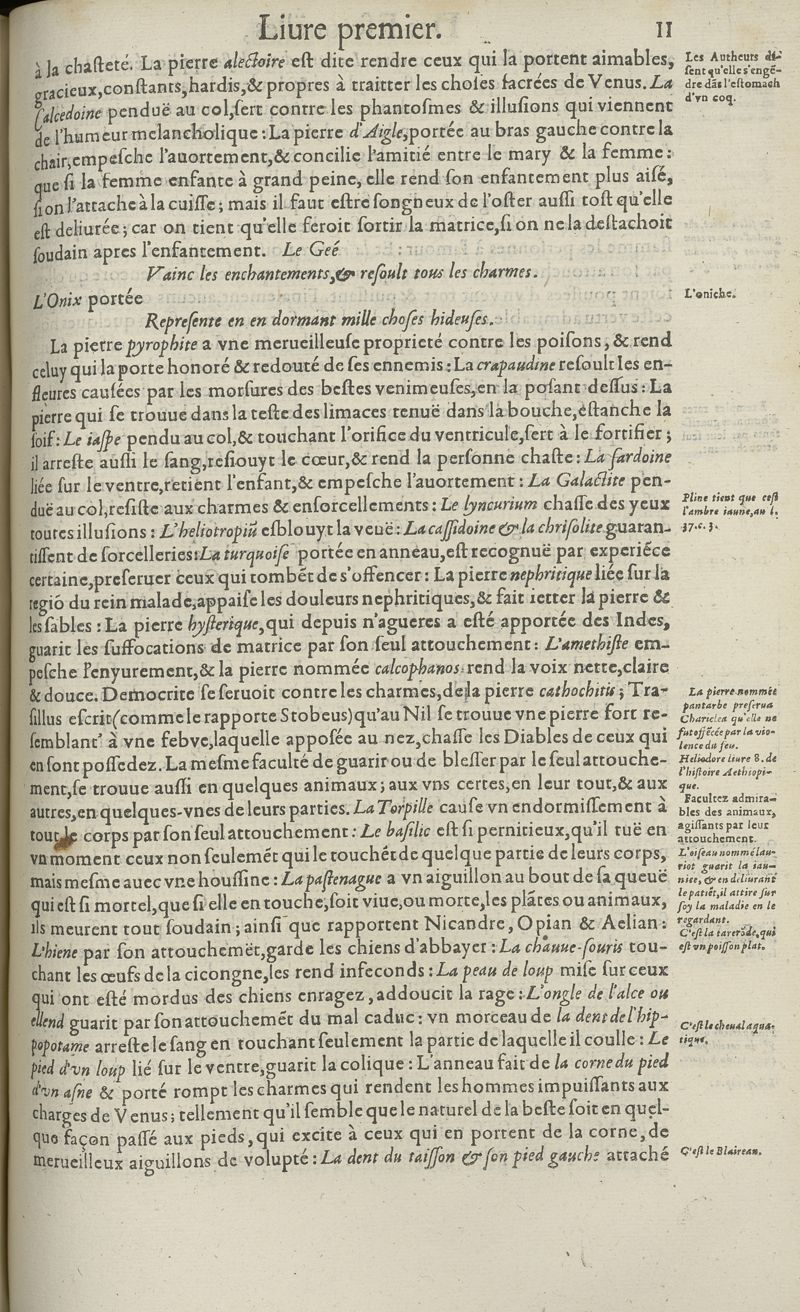 Liure premier.
11
à la chasteté. La pierre alectoire est dite rendre ceux qui la portent aimables,
gracieux,constants,hardis,& propres à traitter les choses sacrées de Venus. La
Calcedoine penduë au col,sert contre les phantosmes & illusions qui viennent
de l'humeur melancholique : La pierre d'Aigle,portée au bras gauche contre la
chair,empesche l'auortement,& concilie l'amitié entre le mary & la femme :
que si la femme enfante à grand peine, elle rend son enfantement plus aisé,
si on l'attache à la cuisse ; mais il faut estre songneux de l'oster aussi tost qu'elle
est deliurée ; car on tient qu'elle feroit sortir la matrice,si on ne la destachoit
soudain apres l'enfantement. Le Geé
Vainc les enchantements,& resoult tous les charmes.
L'Onix portée
Represente en en dormant mille choses hideuses.
La pierre pyrophite a vne merueilleuse proprieté contre les poisons, & rend
celuy qui la porte honoré & redouté de ses ennemis : La crapaudine resoult les en-
fleures causées par les morsures des bestes venimeuses,en la posant dessus : La
pierre qui se trouue dans la teste des limaces tenuë dans la bouche,éstanche la
soif : Le iaspe pendu au col,& touchant l'orifice du ventricule,sert à le fortifier ;
il arreste aussi le sang,resiouyt le cœur,& rend la personne chaste : La sardoine
liée sur le ventre,retient l'enfant,& empesche l'auortement : La Galactite pen-
duë au col,resiste aux charmes & ensorcellements : Le lyncurium chasse des yeux
toutes illusions : L'heliotropiũ esblouyt la veuë : La cassidoine & la chrisolite guaran-
tissent de sorcelleries : La turquoise portée en anneau,est recognuë par experiẽce
certaine,preseruer ceux qui tombẽt de s'offencer : La pierre nephritique liée sur la
regiõ du rein malade,appaise les douleurs nephritiques,& fait ietter la pierre &
les sables : La pierre hysterique,qui depuis n'agueres a esté apportée des Indes,
guarit les suffocations de matrice par son seul attouchement : L'amethiste em-
pesche l'enyurement,& la pierre nommée calcophanos rend la voix nette,claire
& douce. Democrite se seruoit contre les charmes,de la pierre cathochitis ; Tra-
sillus escrit (comme le rapporte Stobeus) qu'au Nil se trouue vne pierre fort re-
semblant' à vne febve,laquelle apposée au nez,chasse les Diables de ceux qui
en sont possedez. La mesme faculté de guarir ou de blesser par le seul attouche-
ment,se trouue aussi en quelques animaux ; aux vns certes,en leur tout,& aux
autres,en quelques-vnes de leurs parties. La Torpille cause vn endormissement à
tout le corps par son seul attouchement : Le basilic est si pernitieux,qu'il tuë en
vn moment ceux non seulemẽt qui le touchẽt de quelque partie de leurs corps,
mais mesme auec vne houssine : La pastenague a vn aiguillon au bout de sa queuë
qui est si mortel,que si elle en touche,soit viue,ou morte,les plãtes ou animaux,
ils meurent tout soudain ; ainsi que rapportent Nicandre, Opian & Aelian :
L'hiene par son attouchemẽt,garde les chiens d'abbayer : La chauue-souris tou-
chant les œufs de la cicongne,les rend infeconds : La peau de loup mise sur ceux
qui ont esté mordus des chiens enragez, addoucit la rage : L'ongle de l'alce ou
ellend guarit par son attouchemẽt du mal caduc : vn morceau de la dent de l'hip-
popotame arreste le sang en touchant seulement la partie de laquelle il coulle : Le
pied d'vn loup lié sur le ventre,guarit la colique : L'anneau fait de la corne du pied
d'vn asne & porté rompt les charmes qui rendent les hommes impuissants aux
charges de Venus ; tellement qu'il semble que le naturel de la beste soit en quel-
que façon passé aux pieds, qui excite à ceux qui en portent de la corne, de
merueilleux aiguillons de volupté : La dent du taisson & son pied gauche attaché
Les Autheurs di-
sent qu'elle s'enge-
dre dãs l'estomach
d'vn coq.
L'oniche.
Pline tient que cest
l'ambre iaune,au l.
37.c.3.
La pierre nommée
pantarbe preserua
Chariclea qu'elle ne
fut offẽcée par la vio-
lence du feu.
Heliodore liure 8. de
l'histoire Aethiopi-
que.
Facultez admira-
bles des animaux,
agissants par leur
attouchement.
L'oiseau nommé lau-
riot guarit la iau-
nice, & en deliurant
le patiẽt,il attire sur
soy la maladie en le
regardant.
C'est la tarerõde,qui
est vn poisson plat.
C'est le cheual aqua-
tique.
C'est le Blaireau.